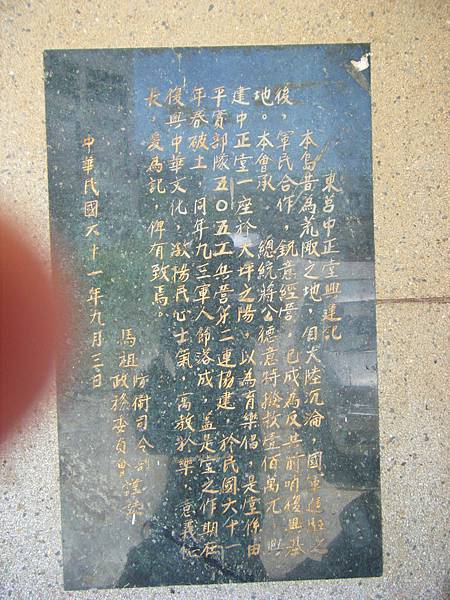 東莒中正堂興建記
本島昔為荒陬之地，自大陸沉淪，國軍進駐之
後，軍民合作，銳意經營，已成為反共前哨復興基
地。本會承　總統蔣公德意特撥款壹佰萬元，興
建中正堂一座於大坪之陽，以為育樂倡，是堂係由
平實部隊五〇五工兵營第二連協建，於民國六十一
年春破土，同年九三軍人節落成，蓋是堂之作期在
復興中華文化，激揚民心士氣，寓教於樂，意義
長，爰為記，俾有致焉。
馬祖防衛司令部
政務委員會謹誌
中華民國六十一年九月三日